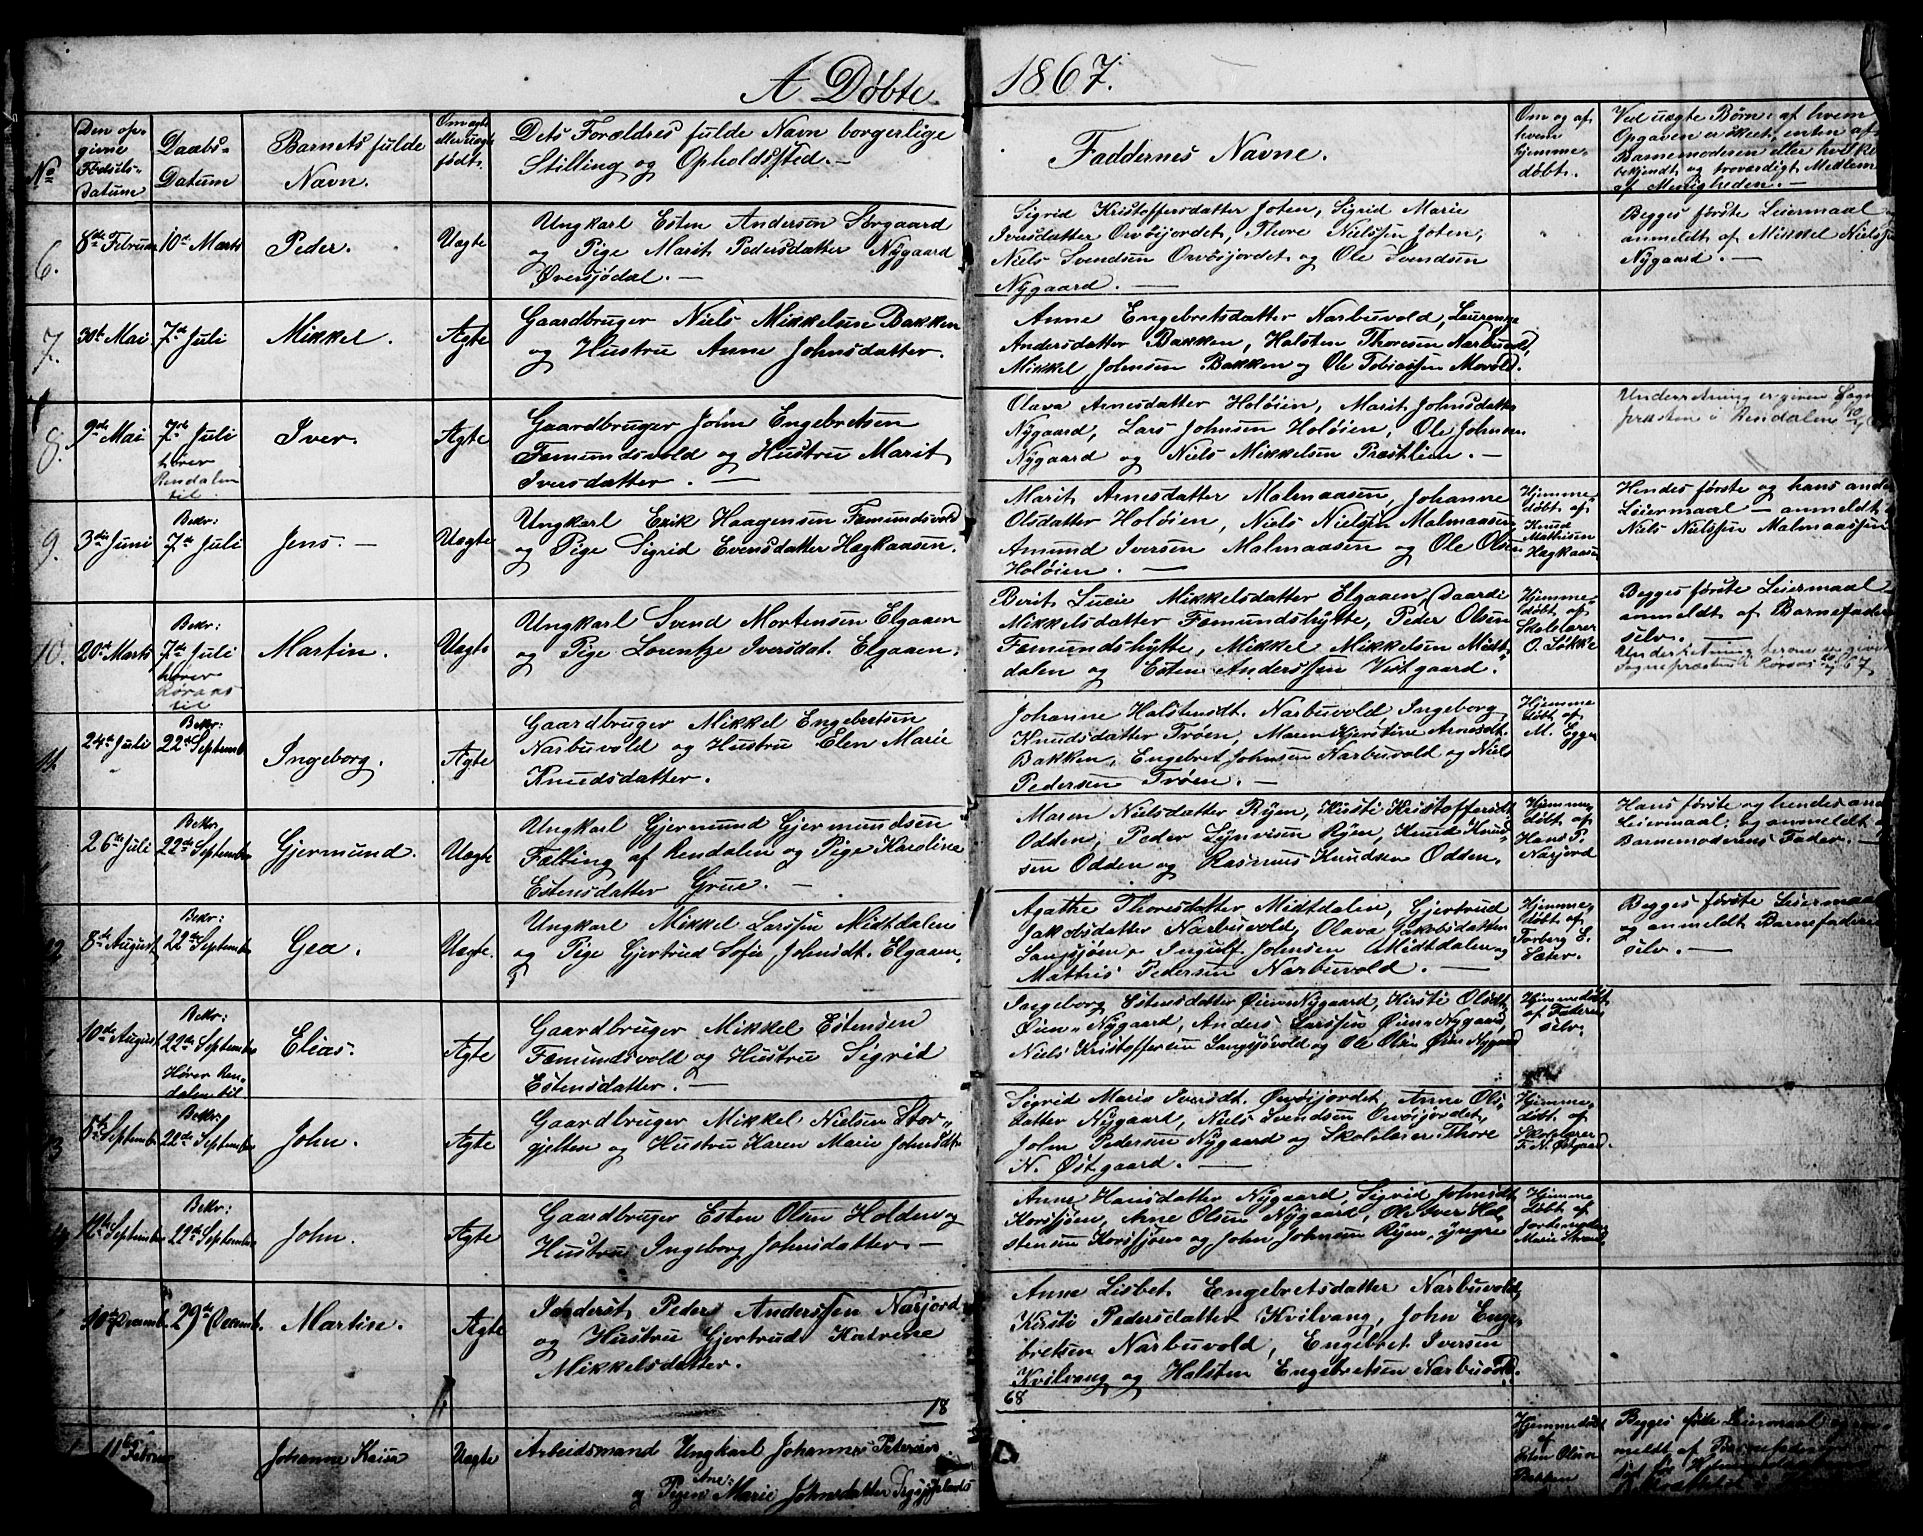 A Døbte 1867.
No
Den op-
givne
Fødsels-
datum
Daabs-
Datum
Barnets fulde
Navn.
Om ægte
eller uægte
født.
Dets Forældres fulde Navn borgerlige
Stilling og Opholdssted.-
Faddernes Navne.
Om og af
hvem
hjemme-
døbt.
Ved uægte Børn: af hvem
Opgaven er skeet, enten af
Barnemoderen eller hvilket
bekjendt og troværdigt Medlem
af Menigheden.-
6.
8de Februar
10de Marts
Peder.
Uægte
Ungkarl Esten Andersen Sørgaard
og Pige Marit Pedersdatter Nÿgaard
Øversjødal.-
Sigrid Kristoffersdatter Joten, Sigrid Marie
Iversdatter Orvøijordet, Thore Nielssen Joten,
Niels Svendsen Orvøijordet og Ole Svendsen
Nÿgaard.-
Begges første Leiermaal
anmeldt af Mikkel Nielssen
Nÿgaard.-
7.
30te Mai
7de Juli
Mikkel.
Ægte
Gaardbruger Niels Mikkelsen Bakken
og Hustru Anne Johnsdatter.
Anne Engebretsdatter Narbuvold, Laurense
Andersdatter Bakken, Halsten Thoresen Narbuvold,
Mikkel Johnsen Bakken og Ole Tobiassen Morvold.
8.
9de Mai
7de Juli
hører
Rendalen
til
Iver.
Ægte
Gaardbruger John Engebretsen
Femundsvold og Hustru Marit
Iversdatter.-
Olava Arnesdatter Holøien, Marit Johnsdatter
Nÿgaard, Lars Johnsen Holøien, Ole Johnsen
Nÿgaard og Niels Mikkelsen Præstlien.-
Underretning er given Sogne
præsten i Rendalen
9.
3de Juni
Bekr:
7de Juli
Jens.-
Uægte
Ungkarl Erik Haagensen Femundsvold
og Pige Sigrid Evensdatter Hagkaasen.
Marit Arnesdatter Malmaasen, Johanne
Olsdatter Holøien, Niels Nielssen Malmaasen
Amund Iversen Malmaasen og Ole Olsen
Holøien.-
Hjemme-
døbt af
Knud
Mathisen
Hagkaasen
Hendes første og hans andet
Leiermaal - anmeldt
Niels Nielssen Malmaassen
10.
20de Marts
Bekr:
7de Juli
hører
Røraas
til
Martin.
Uægte
Ungkarl Svend Mortensen Elgaaen
og Pige Lorentze Iversdat. Elgaaen.
Berit Lucie Mikkelsdatter Elgaaen, Daardi
Mikkelsdatter Femundshytte, Peder Olsen
Femundshytte, Mikkel Mikkelsen Midt-
dalen og Esten Anderssen Vestgaard.
Hjemme-
døbt af
Skolelærer
O. Løkke
Begges første Leiermaal
anmeldt af Barnefaderen
selv.-
Underretning herom er givet
Sognepræsten i Røraas
11.
24de Juli
Bekr:
22de Septemb
Ingeborg.
Ægte
Gaardbruger Mikkel Engebretsen
Narbuvold og Hustru Elen Marie
Knudsdatter.
Johanne Halstensdt. Narbuvold Ingeborg
Knudsdatter Trøen, Maren Kjerstine Arnesdt.
Bakken, Engebret Johnsen Narbuvold og Niels
Pedersen Trøen.-
Hjemme
døbt af
M. Eggen
26de Juli
Bekr.
22de September
Gjermund.
Uægte
Ungkarl Gjermund Gjermundsen
Fælting af Rendalen og Pige Karoline
Estensdatter Grue.-
Maren Nielsdatter Rÿen, Kirsti Kristoffersdt
Odden, Peder Rÿen, Knud Knud-
sen Odden og Rasmus Knudsen Odden.
Hjemme-
døbt af
Hans P.
Narjord
Hans første og hendes andet
Leiermaal, og anmeldt af
Barnemoderens Fader.-
12
8de August
Bekr:
22de Septembr
Gea.
Uægte.
Ungkarl Mikkel Larssen Midtdalen
og Pige Gjertrud Sofie Johnsdt. Elgaaen.
Agathe Thoresdatter Midtdalen, Gjertrud
Jakobsdatter Narbuvold, Olava Jakobsdatter
Langsjøen, Ingulf Johnsen Midtdalen og
Mathis Pedersen Narbuvold.-
Hjemme-
døbt af
Torberg E.
Sæter.
Begges første Leiermaal
og anmeldt Barnefaderen
selv.-
10de August
Bekr:
22de September
Hører Ren-
dalen til
Elias.
Ægte
Gaardbruger Mikkel Estensen
Femundsvold og Hustru Sigrid
Estensdatter.-
Ingeborg Estensdatter Øien-Nÿgaard, Kirsti Olsdt.
Øien-Nÿgaard, Anders Larssen Øien-Nÿgaard,
Niels Kristoffersen Langsjøvold og Ole Olsen Øien Nÿgaard
Hjemmedøbt
af Faderen
selv.
3
5te September
Bekr:
22de September
John.
Ægte
Gaardbruger Mikkel Nielsen Stor-
gjelten og Hustru Karen Marie Johnsdt.
Sigrid Marie Iversdt. Orvøijordet, Anne Ols-
datter Nÿgaard, Niels Svendsen Orvøijordet,
John Pedersen Nÿgaard og Skolelærer Thore
N. Østgaard.-
Hjemme-
døbt af
Skolelærer
T. N. Østgaard.
12te September
Bekr:
22de September
John.
Ægte
Gaardbruger Esten Olsen Holden og
Hustru Ingeborg Johnsdatter.-
Anne Hansdatter Nÿgaard, Sigrid Johnsdt
Korssjøen, Arne Olsen Nÿgaard, Ole Iver Hal-
stensen Korssjøen og John Johnsen Rÿen, ÿngre
Hjemme
døbt af
Jordemoder
Marie Strand.
10de Decemb.
29de Decemb.
Martin.
Ægte
Inderst Peder Anderssen Narjord
og Hustru Gjertrud Katrine
Mikkelsdatter.
Anne Lisbet Engebretsdatter Narbuvold,
Kirsti Pedersdatter Kvilvang, John Enge-
bretsen Narbuvold, Engebret Iversen
Kvilvang og Halsten Engebretsen Narbuvold.
18
68
11te Februar
Johanne Kaisa
Uægte
Arbeidsmand Ungkarl Johannes Petersen
og Pigen Ane: Marie Johnsdatter
Hjemmedøbt
af
Esten Olsen
Bakken
Begges første Leiermaal
meldt af Barnefaderen